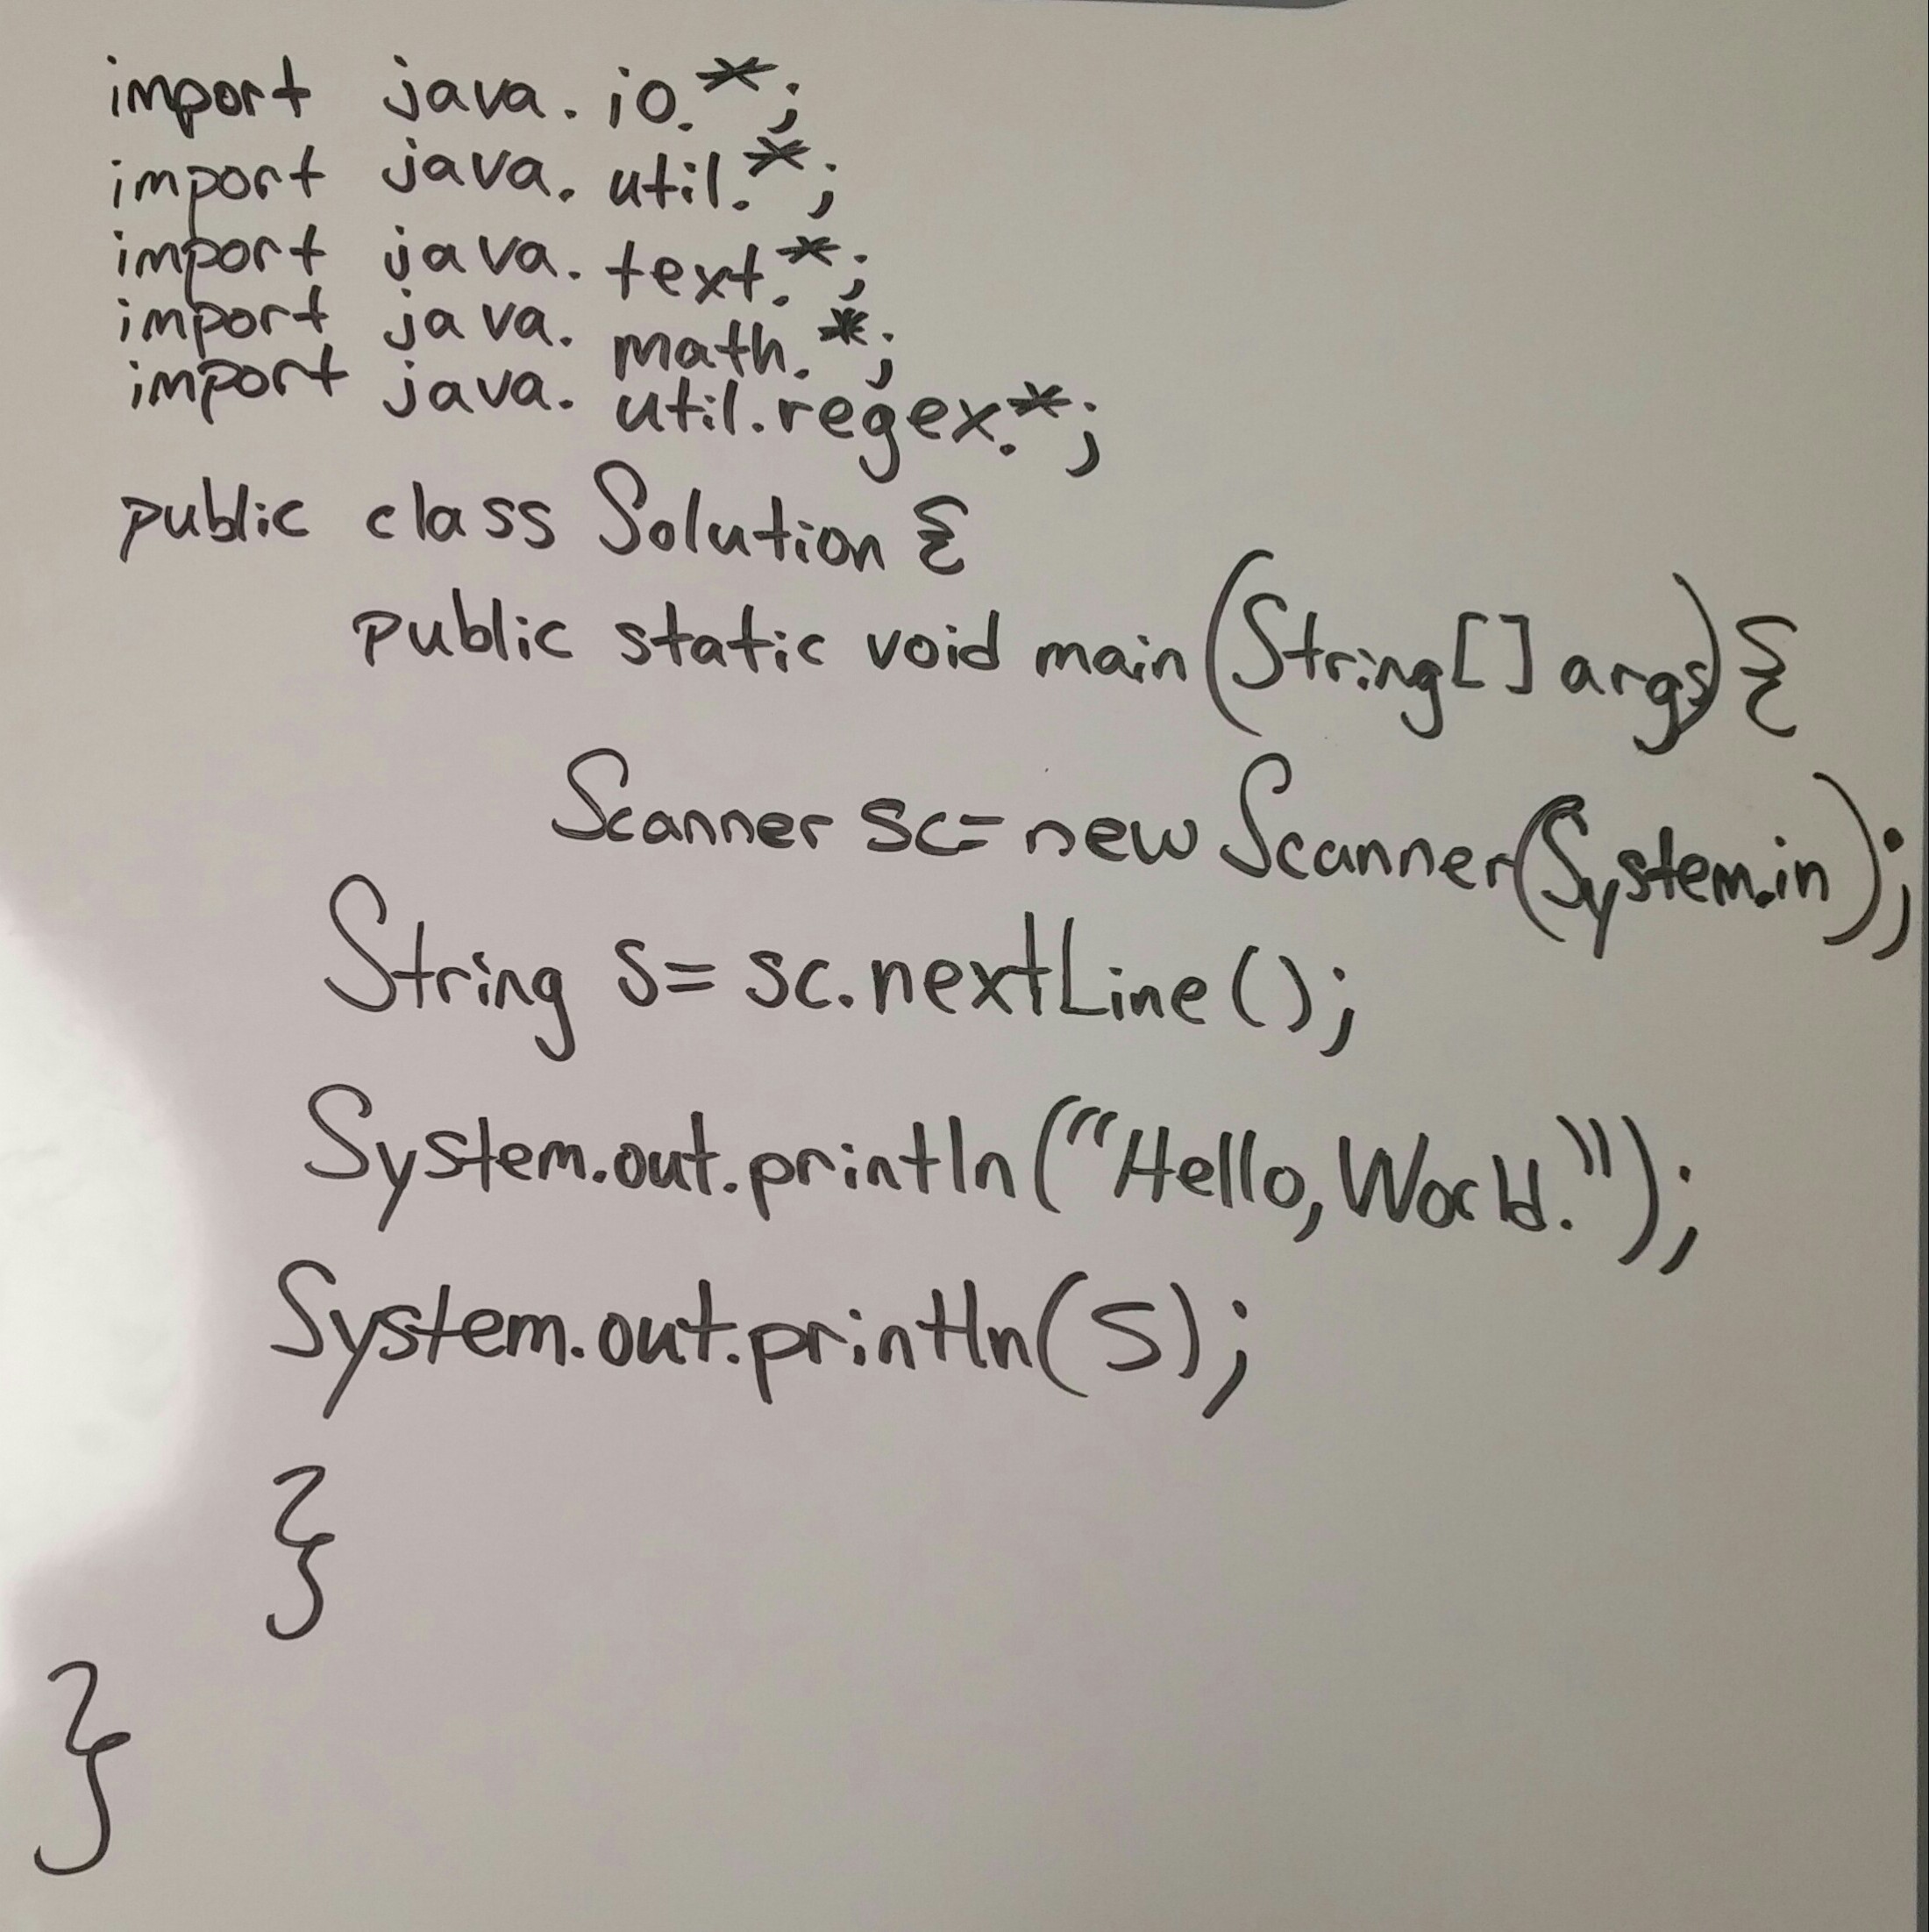 import java.io.*;
import java.util.*;
import java.text.*;
import java.math.*;
import java.util.regex.*;
public class Solution {
public static void main(String[] args){
Scanner sc= new Scanner(System.in);
String s= sc.nextLine();
System.out.println("Hello, World.");
System.out.println(s);
}
}